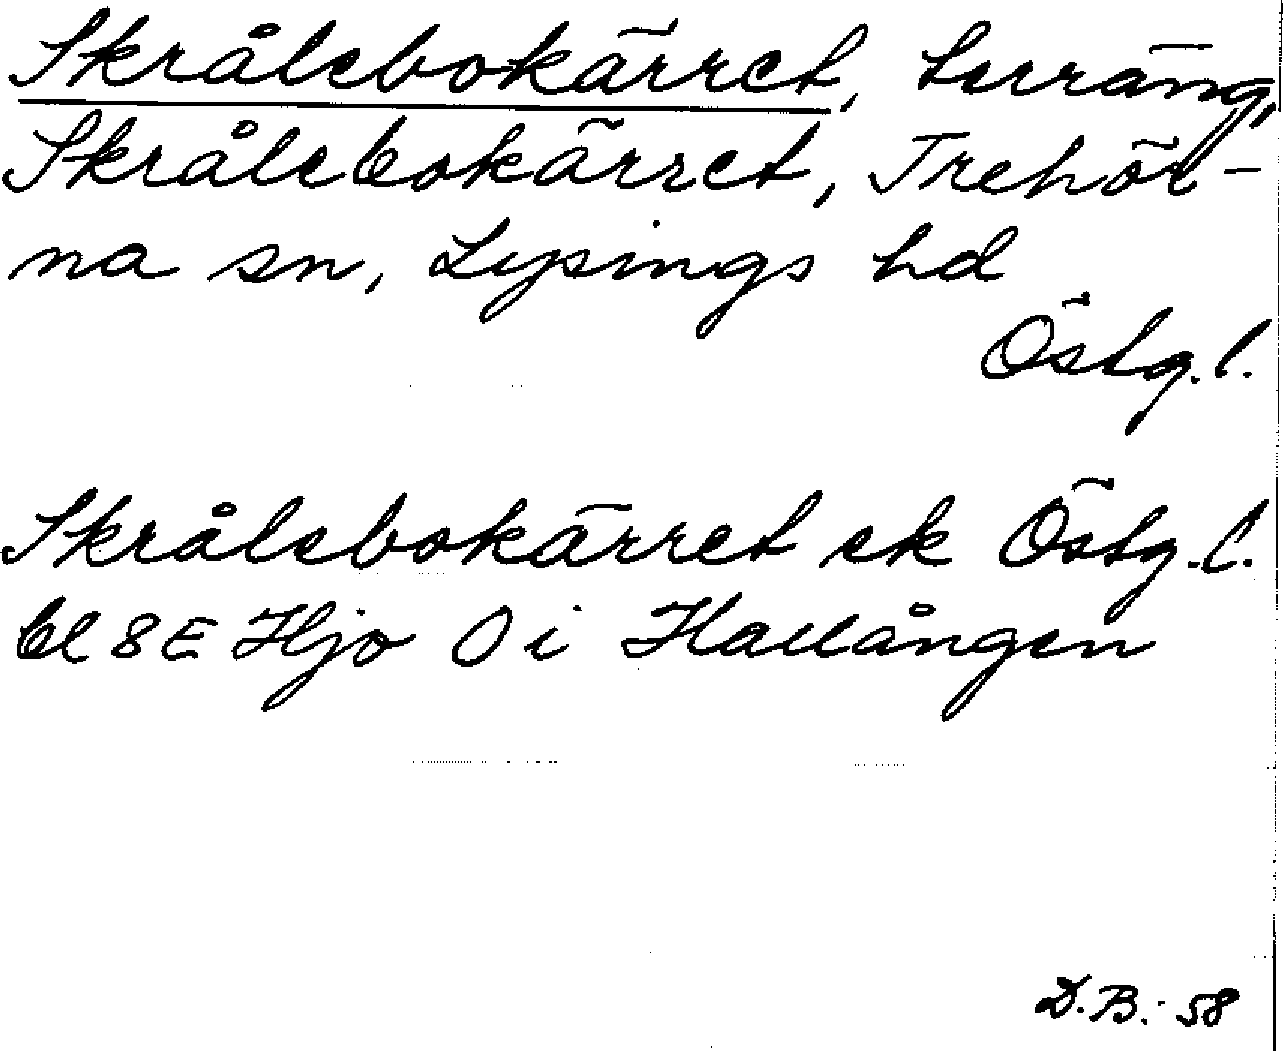 Skrålebokärret, terräng,
Skrålebokärret, Trehör-
na sn, Lysings hd
Östg.l.
Skrålebokärret ek Östg.l.
bl 8E Hjo O i Hallången
D.B. - 58